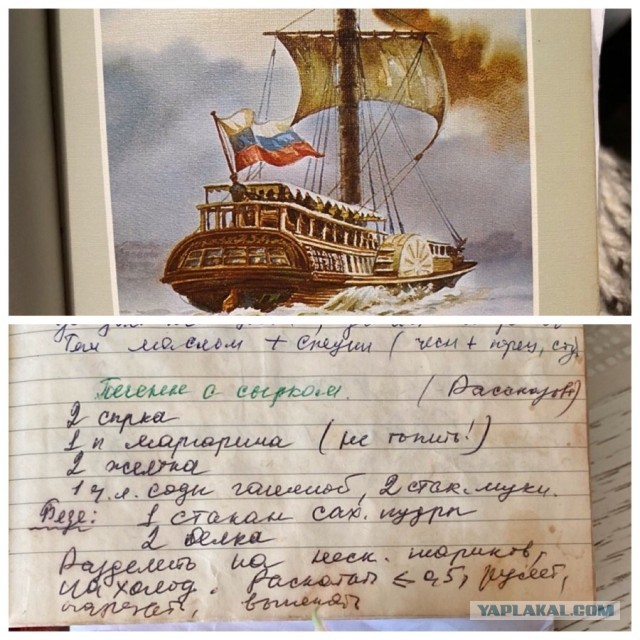 Том маслом + специи (чесн + перец,
Печенье с сырком. (Рассказова)
2 сырка
1 п маргарина (не топить!)
2 желтка
1 ч.л. соды гашеной, 2 стак. муки.
Безе: 1 стакан сах. пудры
2 белка
Разделить на неск. шариков,
на холод. Раскатать ≤ 0,5, рулет,
нарезать, выпекать
YAPLAKAL.COM